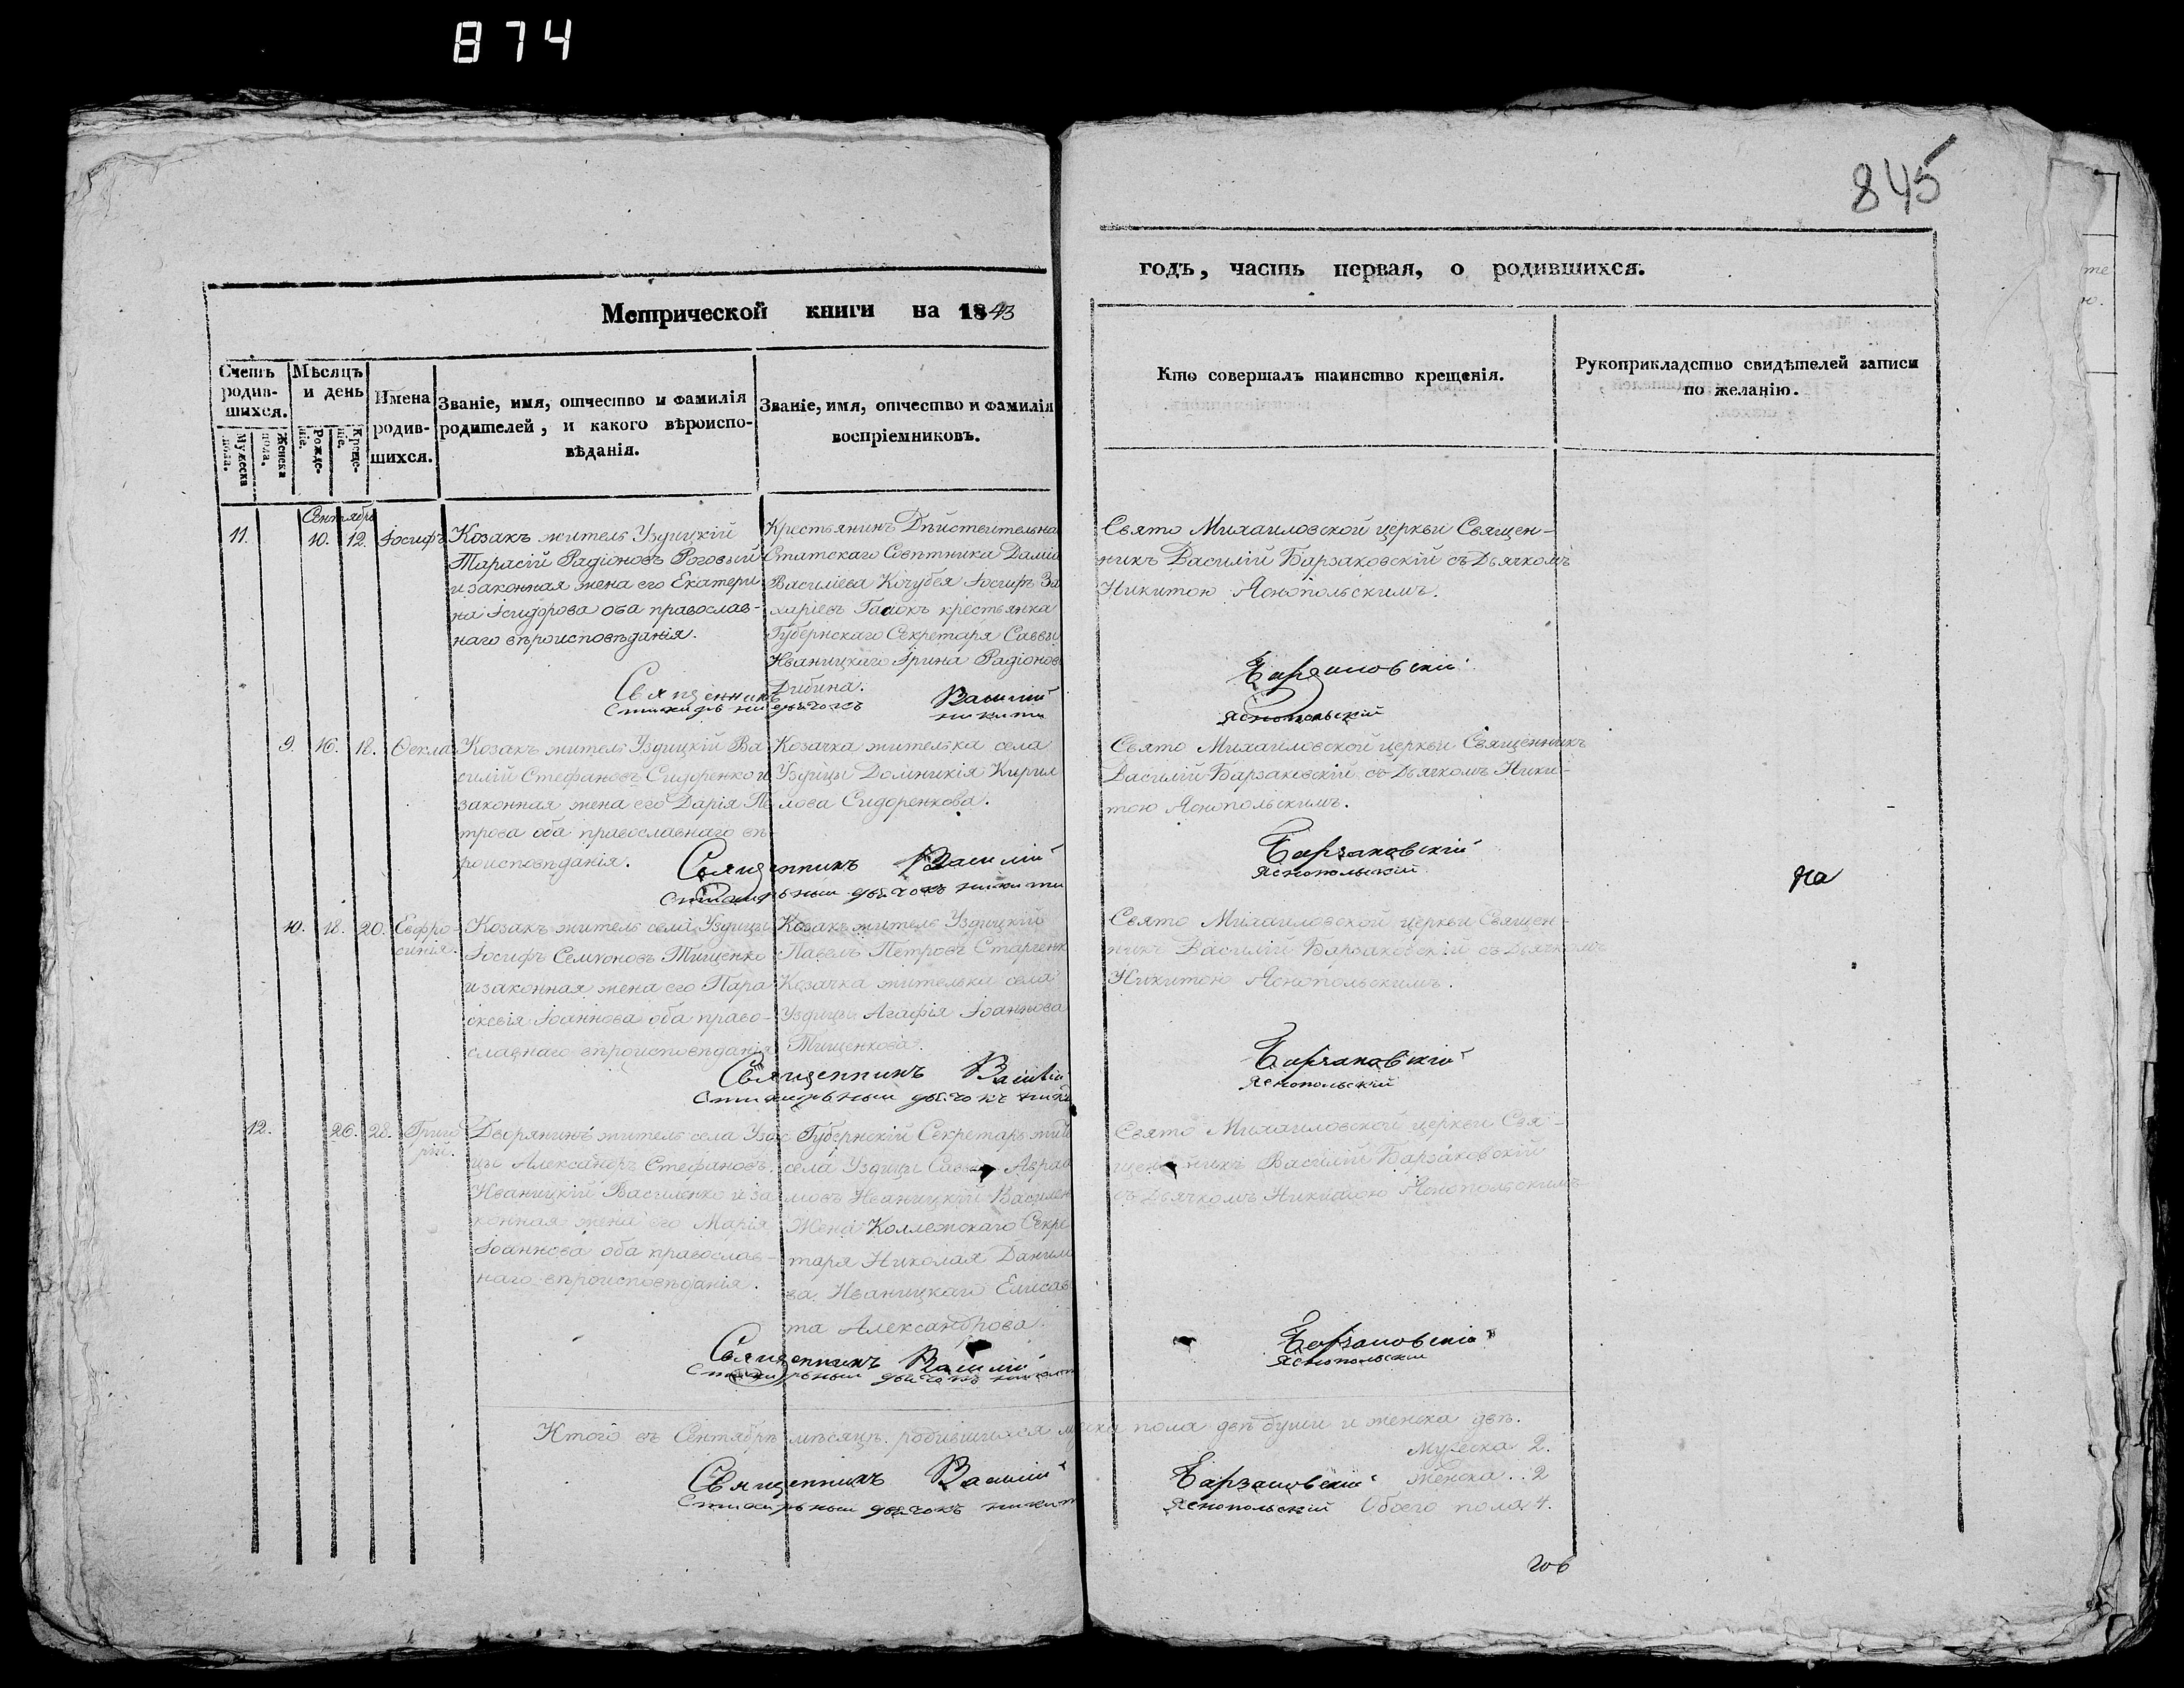 874
845
Метрической книги на 1843
годъ, часть первая, о родившихся.
Счетъ родив-шихся.
Мужеска пола.
Женска пола.
Мѣсяцъ и день
Рожде-нія.
Креще-нія.
Имена родив-шихся.
Званіе, имя, отчество и фамилія
родителей, и какого вѣроиспо-
вѣданія.
Званіе, имя, отчество и фамилія
воспріемниковъ.
Кто совершалъ таинство крещенія.
Рукоприкладство свидѣтелей записи
по желанію.
Сентябрь
11. 10. 12. Іосифъ
Козакъ житель Уздицкій
Тарасій Радіоновъ Роговый
и законная жена его Екатери
на Ісидорова оба православ-
наго вѣроисповѣданія.
Крестьянинъ Дѣйствительна
Статскаго Совѣтника Демія
Василіева Кочубея Іосифъ За
харіевъ Гаіокъ крестьянка
Губернскаго Секретаря Саввы
Иваницкаго Ірина Радіонов
Дибина.
Свято Михаиловской церкви Священ-
никъ Василій Барзаковскій съ Дьячкомъ
Никитою Яснопольскимъ.
Священникъ Василій Барзаковскій
Стихарный дьячокъ Никита Яснопольскій
9. 16. 18. Ѳекла
Козакъ житель Уздицкій Ва
силій Стефановъ Сидоренко и
законная жена его Дарія Пе
трова оба православнаго вѣ
роисповѣданія.
Козачка жителька села
Уздицы Домникія Кирил
лова Сидоренкова.
Свято Михаиловской церкви Священникъ
Василій Барзаковскій съ Дьячкомъ Ники-
тою Яснопольскимъ.
Священникъ Василій Барзаковскій
Стихарный дьячокъ Никита Яснопольскій
На
10. 18. 20. Евфро-
синія.
Козакъ житель села Уздицы
Іосифъ Семіоновъ Тищенко
и законная жена его Пара
скевія Іоаннова оба право-
славнаго вѣроисповѣданія
Козакъ житель Уздицкій
Павелъ Петровъ Старченк
Козачка жителька села
Уздицы Агафія Іоаннова
Тищенкова.
Свято Михаиловской церкви Священ-
никъ Василій Барзаковскій съ Дьячкомъ
Никитою Яснопольскимъ.
Священникъ Василій Барзаковскій
Стихарный дьячокъ Никита Яснопольскій
12. 26. 28. Григо
рій.
Дворянинъ житель села Узди
цы Александръ Стефановъ
Иваницкій Василенко и за
конная жена его Марія
Іоаннова оба православ-
наго вѣроисповѣданія.
Губернскій Секретарь жит
села Уздицы Савва Авраа
мовъ Иваницкій Василен
Жена Коллежскаго Секре
таря Николая Данило
ва Иваницкаго Елисав
та Александрова.
Свято Михаиловской церкви Свя-
щенникъ Василій Барзаковскій
съ Дьячкомъ Никитою Яснопольскимъ
Священникъ Василій Барзаковскій
Стихарный дьячокъ Никита Яснопольскій
Итого въ Сентябрѣ мѣсяцѣ родившихся мужска пола двѣ души и женска двѣ.
Мужеска 2.
Женска..2
Обоего пола 4.
Священникъ Василій Барзаковскій
Стихарный дьячокъ Никита Яснопольскій